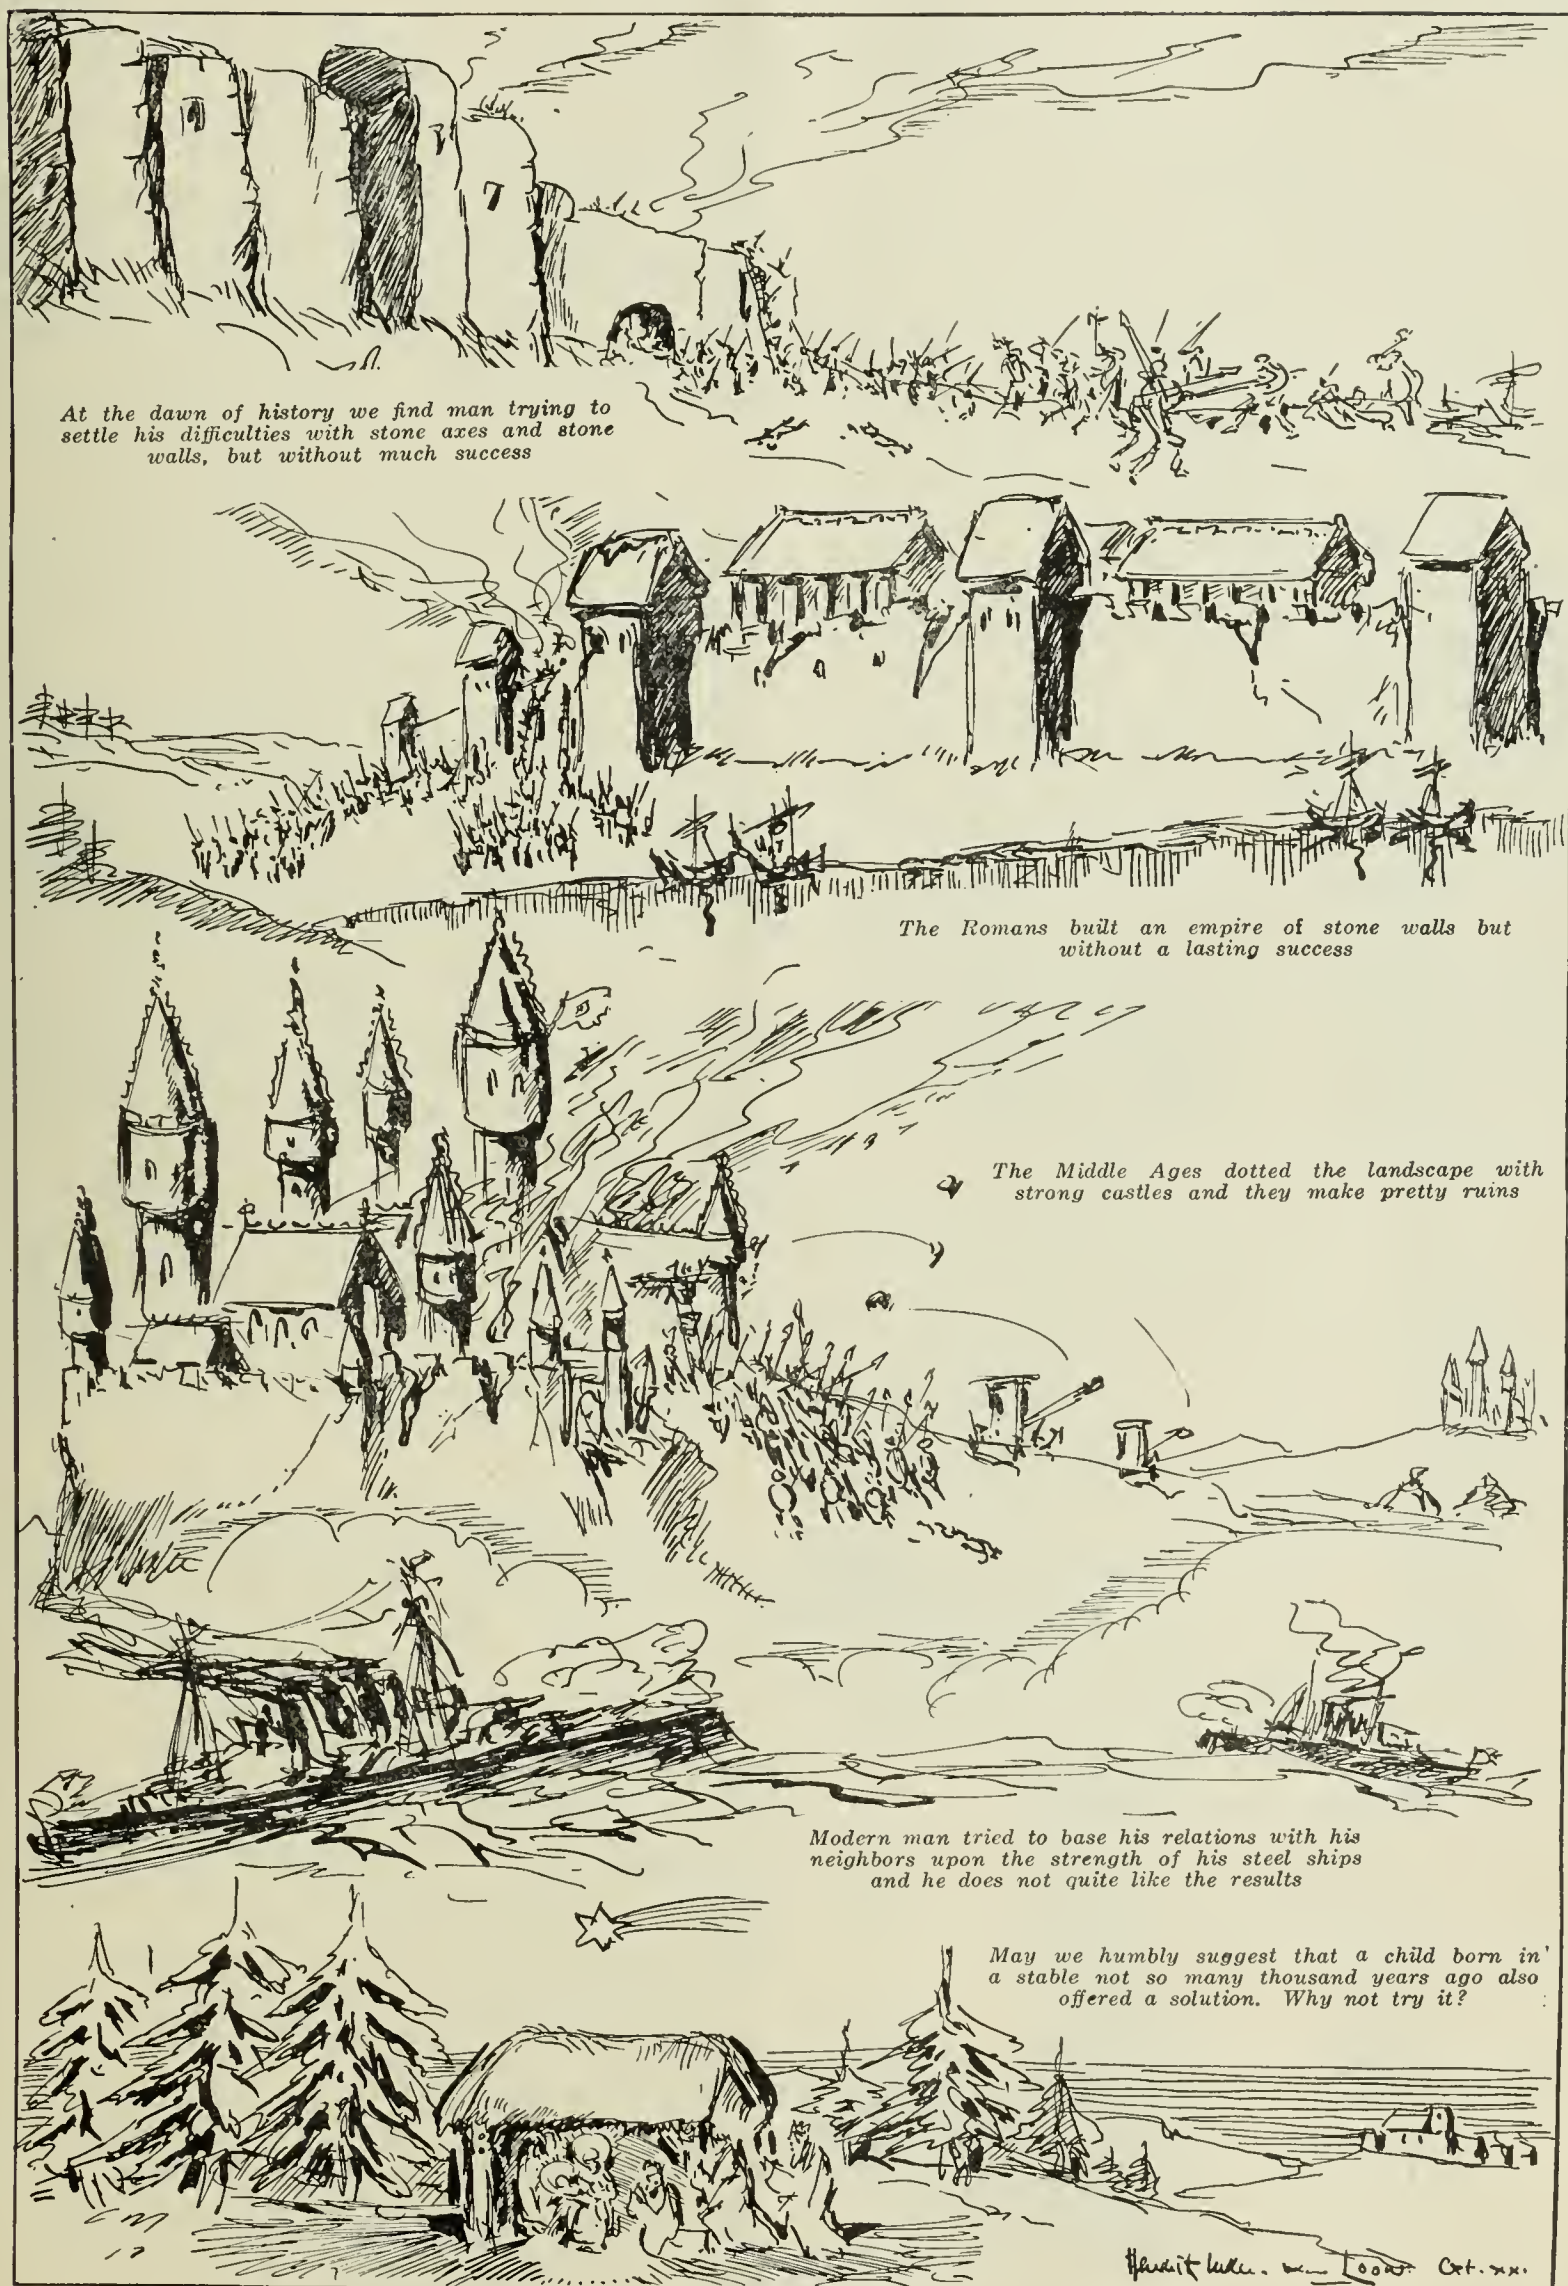 At the dawn of history we find man trying to
settle his difficulties with stone axes and stone
walls, but without much success
The Romans built an empire of stone walls but
without a lasting success
The Middle Ages dotted the landscape with
strong castles and they make pretty ruins
Modern man tried to base his relations with his
neighbors upon the strength of his steel ships
and he does not quite like the results
May we humbly suggest that a child born in
a stable not so many thousand years ago also
offered a solution. Why not try it?
Loon